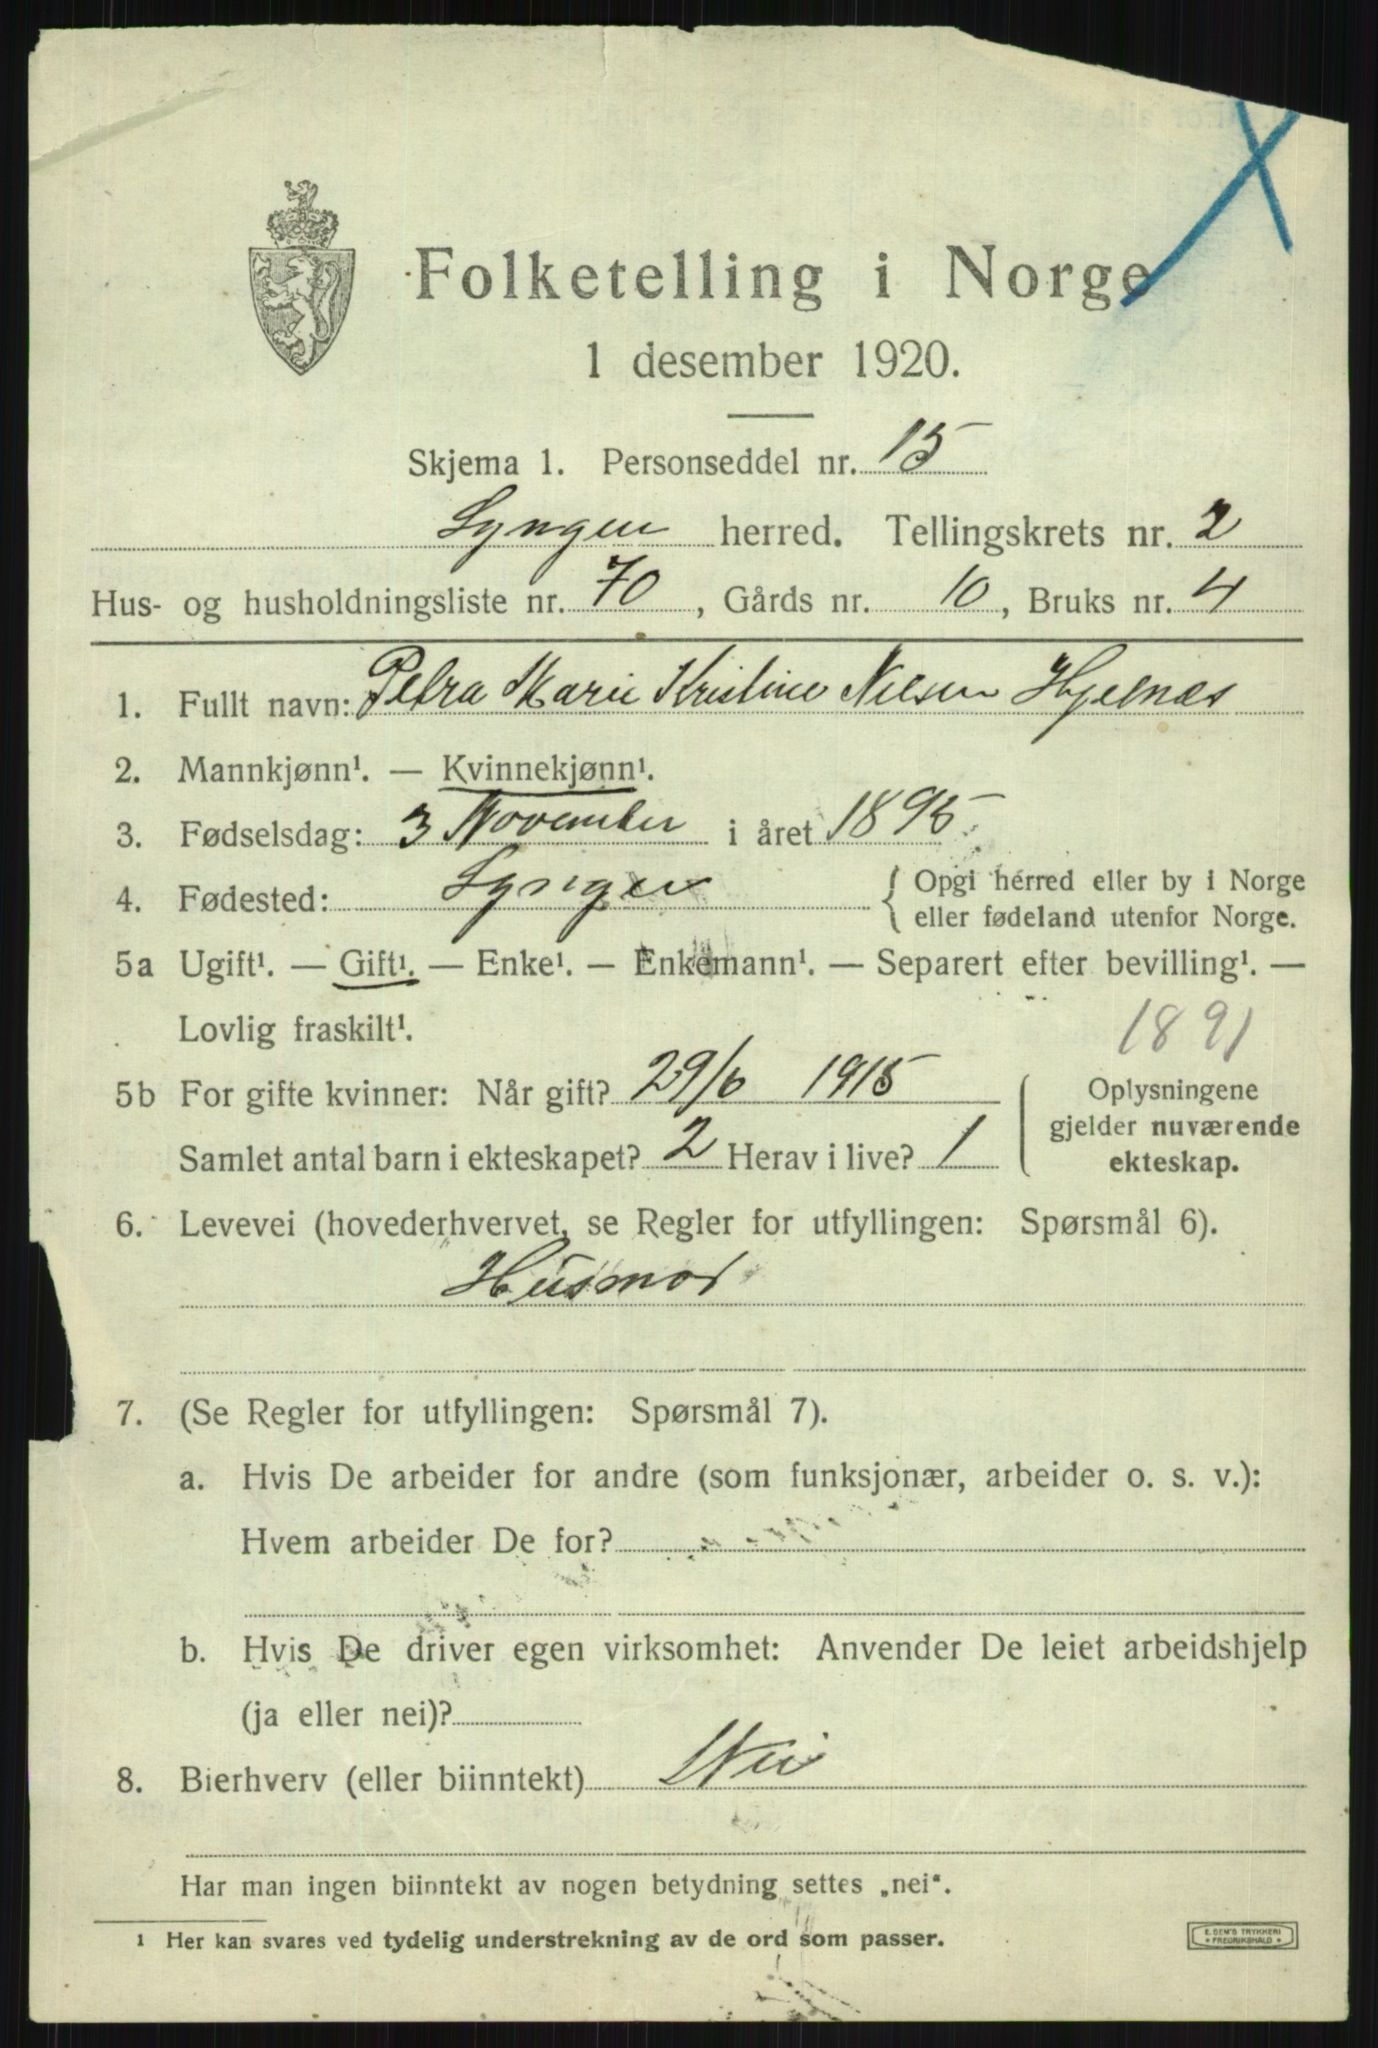 Folketelling i Norge
1 desember 1920.
Skjema 1. Personseddel nr. 15
Lyngen herred. Tellingskrets nr. 2
Hus- og husholdningsliste nr. 70, Gårds nr. 10, Bruks nr. 4
1. Fullt navn: Petra Marie Kristine Nilsen Hjelnæs
2. Mannkjønn¹. — Kvinnekjønn¹.
3. Fødselsdag: 3 November i året 1895
4. Fødested: Lyngen { Opgi herred eller by i Norge
eller fødeland utenfor Norge.
5a Ugift¹. — Gift¹. — Enke¹. — Enkemann¹. — Separert efter bevilling¹. —
Lovlig fraskilt¹.
1891
5b For gifte kvinner: Når gift? 29/6 1915
Samlet antal barn i ekteskapet? 2 Herav i live? 1
Oplysningene
gjelder nuværende
ekteskap.
6. Levevei (hovederhvervet, se Regler for utfyllingen: Spørsmål 6).
Husmor
7. (Se Regler for utfyllingen: Spørsmål 7).
a. Hvis De arbeider for andre (som funksjonær, arbeider o. s. v.):
Hvem arbeider De for?
b. Hvis De driver egen virksomhet: Anvender De leiet arbeidshjelp
(ja eller nei)?
8. Bierhverv (eller biinntekt) Nei
Har man ingen biinntekt av nogen betydning settes „nei“.
¹ Her kan svares ved tydelig understrekning av de ord som passer.
E. SEM'S TRYKKERI
* FREDRIKSHALD *